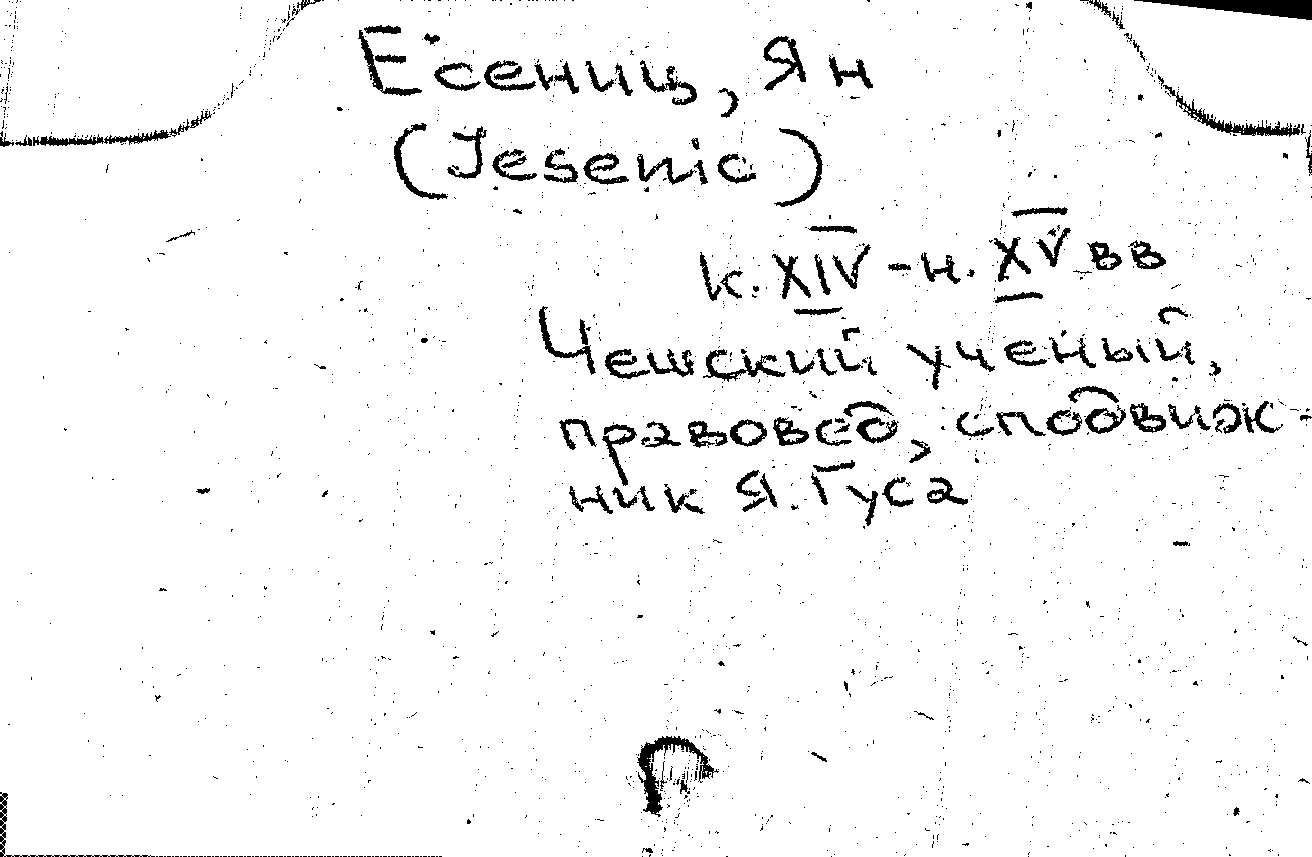 Есениц, Ян
(Jesenic)
к. XIV - н. XV вв
Чешский ученый,
правовед, сподвиж-
ник Я. Гуса